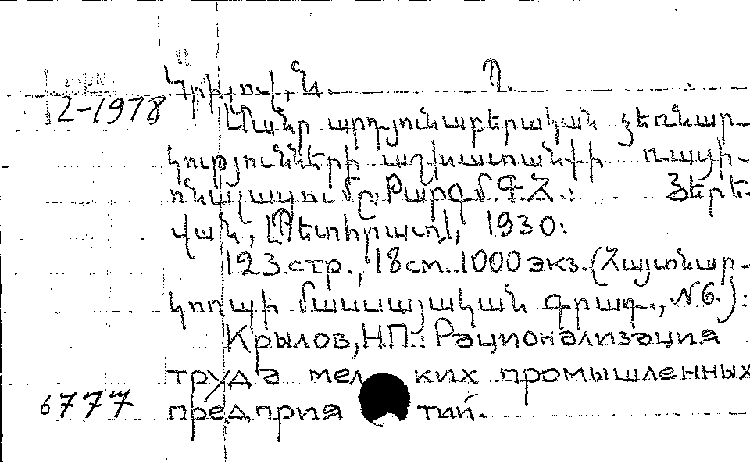 Կրիլով, Ն. Պ.
2-1978
Մանր արդյունաբերական ձեռնար-
կությունների աշխատանքի ռացիո-
նալացումը. Թարգմ. Գ. Հ.: Յերե-
վան, Պետհրատ, 1930:
123 стр., 18 см. 1000 экз. (Հայտնար-
կոոպի մասսայական գրադ., №6.):
Крылов, Н.П.: Рационализация
труда мел ких промышленных
6777 предприя тий.